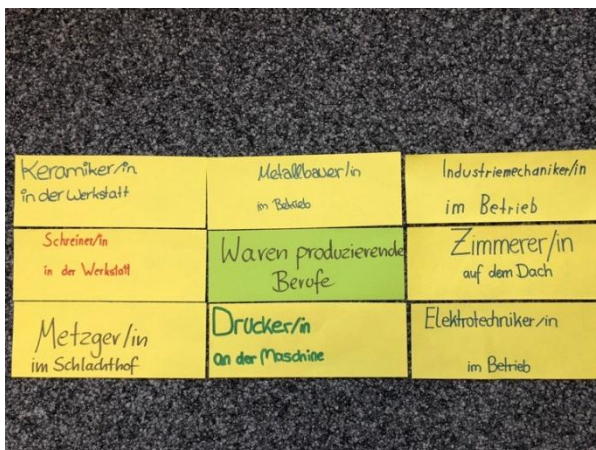 Keramiker/in
in der Werkstatt
Metallbauer/in
im Betrieb
Industriemechaniker/in
im Betrieb
Schreiner/in
in der Werkstatt
Waren produzierende
Berufe
Zimmerer/in
auf dem Dach
Metzger/in
im Schlachthof
Drucker/in
an der Maschine
Elektrotechniker/in
im Betrieb